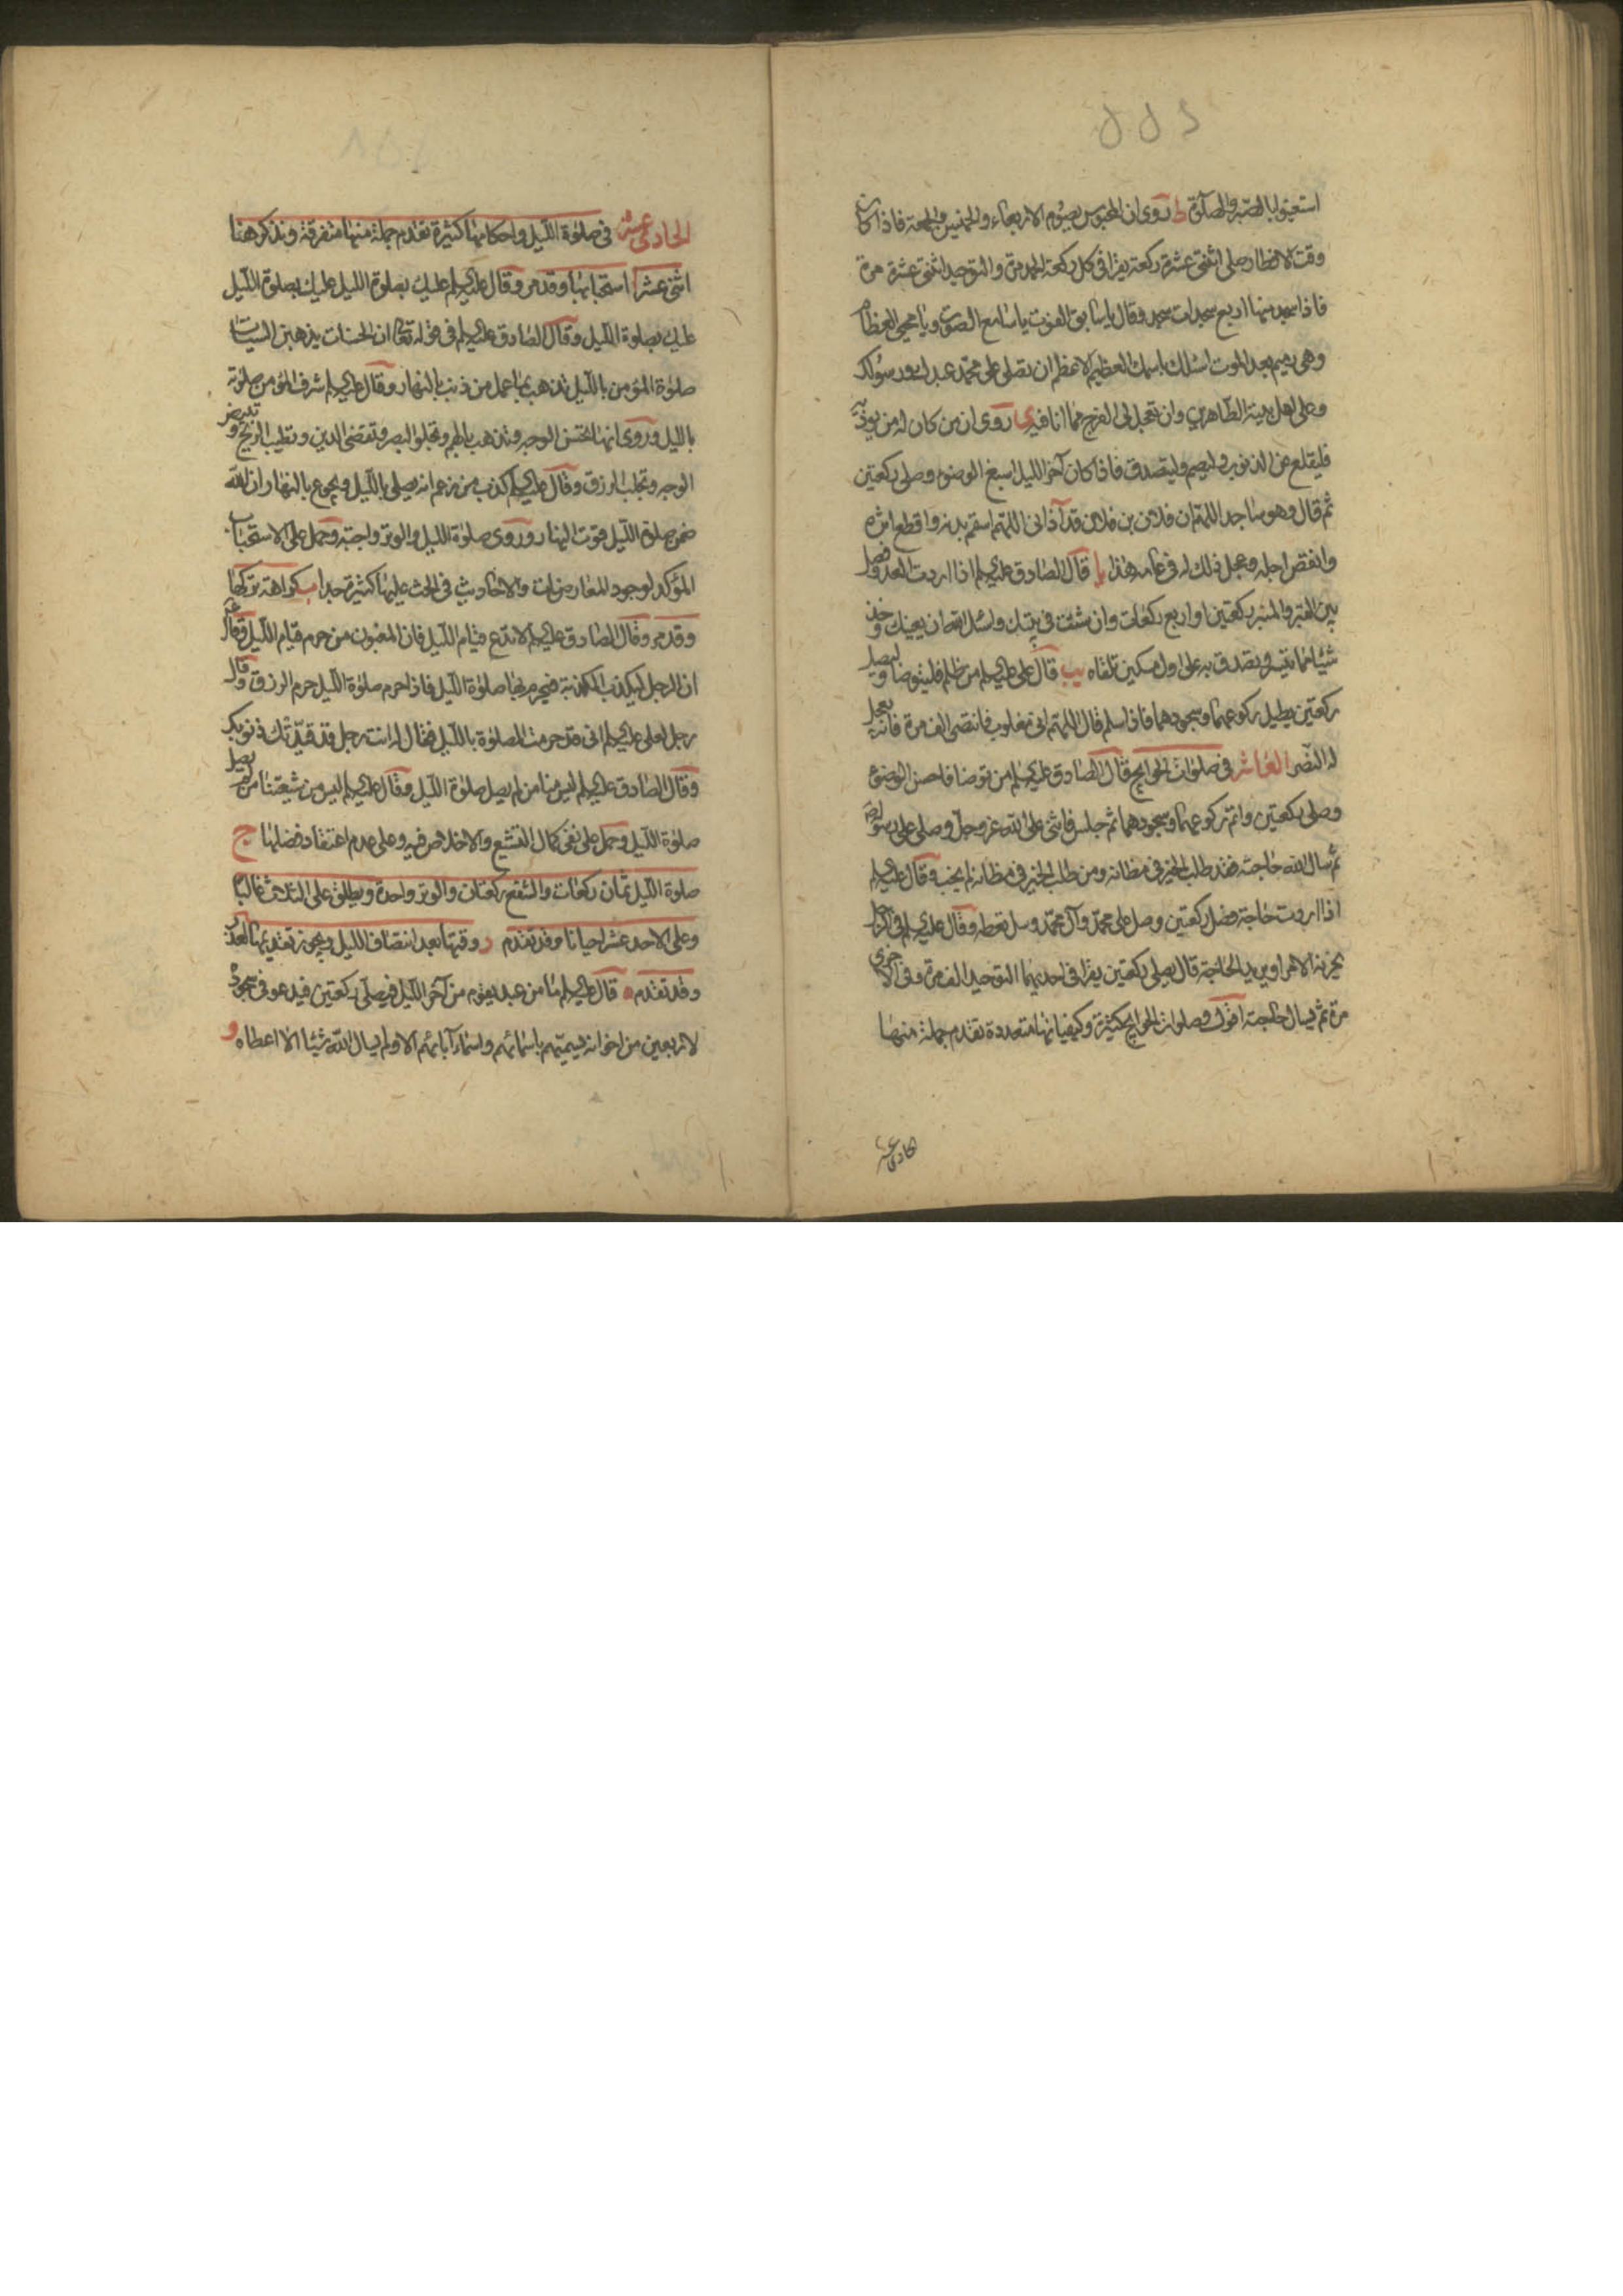 استعينوا بالصبر والصلوة ط روى ان المحبوس يصوم الاربعاء والخميس والجمعة فاذا كان
وقت الافطار صلى اثنتى عشرة ركعة يقرا فى كل ركعة الحمد مرة والتوحيد اثنتى عشرة مرة
فاذا سجد منها اربع سجدات سجد وقال يا سابق الفوت يا سامع الصوت ويا محيى العظام
وهى رميم بعد الموت اسئلك باسمك العظيم الاعظم ان تصلى على محمد عبدك ورسولك
وعلى اهل بيته الطاهرين وان تعجل لى الفرج مما انا فيه ى روى ان من كان له من يوذيه
فليقلع عن الذنوب وليصم وليتصدق فاذا كان آخر الليل اسبغ الوضوء وصلى ركعتين
ثم قال وهو ساجد اللهم ان فلان بن فلان قد آذانى اللهم اسقم بدنه واقطع اثره
وانقص اجله وعجل ذلك له فى عامه هذا يا قال الصادق عليه السلم اذا اردت العدو فصل
بين القبر والمنبر ركعتين او اربع ركعات وان شئت فى بيتك واسئل الله ان يعينك وخذ
شيئا مما تيسر وتصدق به على اول مسكين تلقاه يب قال على عليه السلم من ظلم فليتوضا وليصل
ركعتين يطيل ركوعهما وسجودهما فاذا سلم قال اللهم انى مغلوب فانتصر الف مرة فانه يعجل
له النصر العاشر فى صلوات الحوايج قال الصادق عليه السلم من توضا فاحسن الوضوء
وصلى ركعتين واتم ركوعهما وسجودهما ثم جلس فاثنى على الله عز وجل وصلى على رسوله
ثم سال الله حاجته فقد طلب الخير فى مظانه ومن طلب الخير فى مظانه لم يخب وقال عليه السلم
اذا اردت حاجة فصل ركعتين وصل على محمد وآل محمد وسل تعطه وقال عليه السلم فى الرجل
يحزنه الامر او يريد الحاجة قال يصلى ركعتين يقرا فى احديهما التوحيد الف مرة وفى الاخرى
مرة ثم يسال حاجته اقول وصلوات الحوايج كثيرة وكيفياتها متعددة تقدم جملة منها
الحادى عشر
الحادى عشر فى صلوة الليل واحكامها كثيرة تقدم جملة منها متفرقة ونذكر هنا
اثنى عشر ا استحبابها وقد مر وقال عليه السلم عليك بصلوة الليل عليك بصلوة الليل
عليك بصلوة الليل وقال الصادق عليه السلم فى قوله تعالى ان الحسنات يذهبن السيئات
صلوة المؤمن بالليل تذهب بما عمل من ذنب بالنهار وقال عليه السلم شرف المؤمن صلوته
بالليل وروى انها تحسن الوجه وتذهب بالهم وتجلو البصر وتقضى الدين وتطيب الريح وتبيض
الوجه وتجلب الرزق وقال عليه السلم كذب من زعم انه يصلى بالليل ويجوع بالنهار ان الله
ضمن صلوة الليل قوت النهار وروى صلوة الليل والوتر واجبة وحمل على الاستحباب
المؤكد لوجود المعارضات والاحاديث فى الحث عليها كثيرة جدا ب كراهة تركها
وقد مر وقال الصادق عليه السلم لا تدع قيام الليل فان المغبون من حرم قيام الليل وقال
ان الرجل ليكذب الكذبة فيحرم بها صلوة الليل فاذا حرم صلوة الليل حرم الرزق وقال
رجل لعلى عليه السلم انى قد حرمت الصلوة بالليل فقال له انت رجل قد قيدتك ذنوبك
وقال الصادق عليه السلم ليس منا من لم يصل صلوة الليل وقال عليه السلم ليس من شيعتنا من لم يصل
صلوة الليل وحمل على نفى كمال التشيع والاخلاص فيه وعلى عدم اعتقاد فضلها ج
صلوة الليل ثمان ركعات والشفع ركعتان والوتر واحدة ويطلق على الثلاث غالبا
وعلى الاحد عشر احيانا وقد تقدم د وقتها بعد انتصاف الليل ويجوز تقديمها لعذر
وقد تقدم ه قال عليه السلم ما من عبد يقوم من آخر الليل فيصلى ركعتين فيدعو فى سجوده
لاربعين من اخوانه يسميهم باسمائهم واسماء آبائهم الا ولم يسال الله شيئا الا اعطاه و